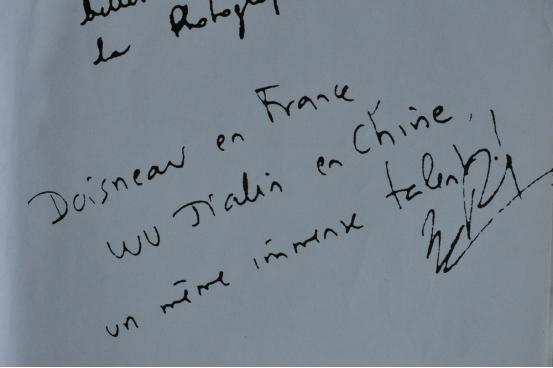 la Photogr
Doisneau en France
WU Jialin en Chine,
un même immense talent!